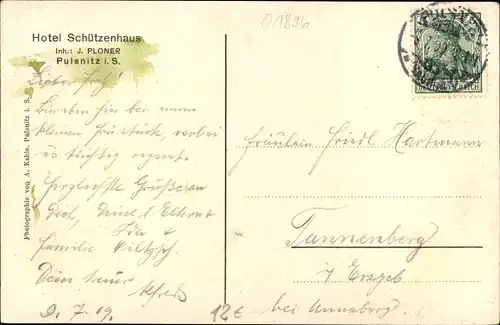 Hotel Schützenhaus
Inh.: J. PLONER
Pulsnitz i. S.
Photographie von A. Kahle, Pulsnitz i. S.
01896
PULSNITZ
REICH
Lieber
hier bei einem
kleinen Frühstück, wobei
es tüchtig regnet.
Herzlichste Grüße an
Dich, Deine l. Eltern u.
Familie
Dein treuer
Alfred
D. 7. 09.
Fräulein Friedl Hartmann
Tannenberg
i/ Erzgeb
bei Annaberg.
12€